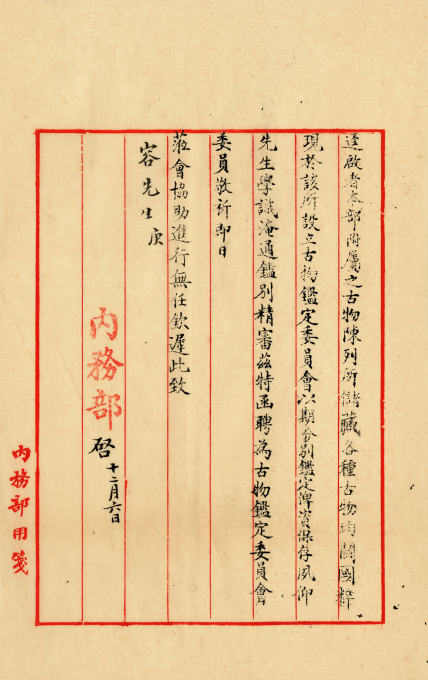 逕啟者本部附屬之古物陳列所儲藏各種古物均關國粹
現於該所設立古物鑑定委員會以期分別鑑定俾資保存夙仰
先生學識淹通鑑別精審茲特函聘為古物鑑定委員會
委員敬祈即日
蒞會協助進行無任欽遲此致
容先生庚
內務部啓十二月六日
內務部用箋